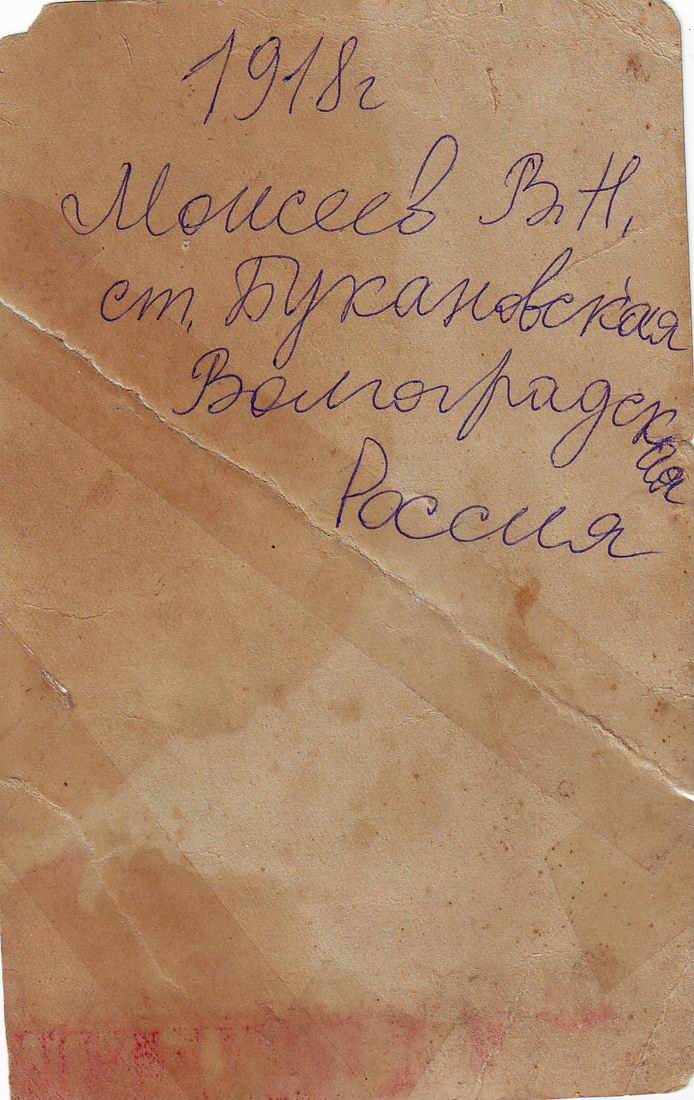 1918г
Моисеев В.Н.
ст. Букановская
Волгоградская
Россия